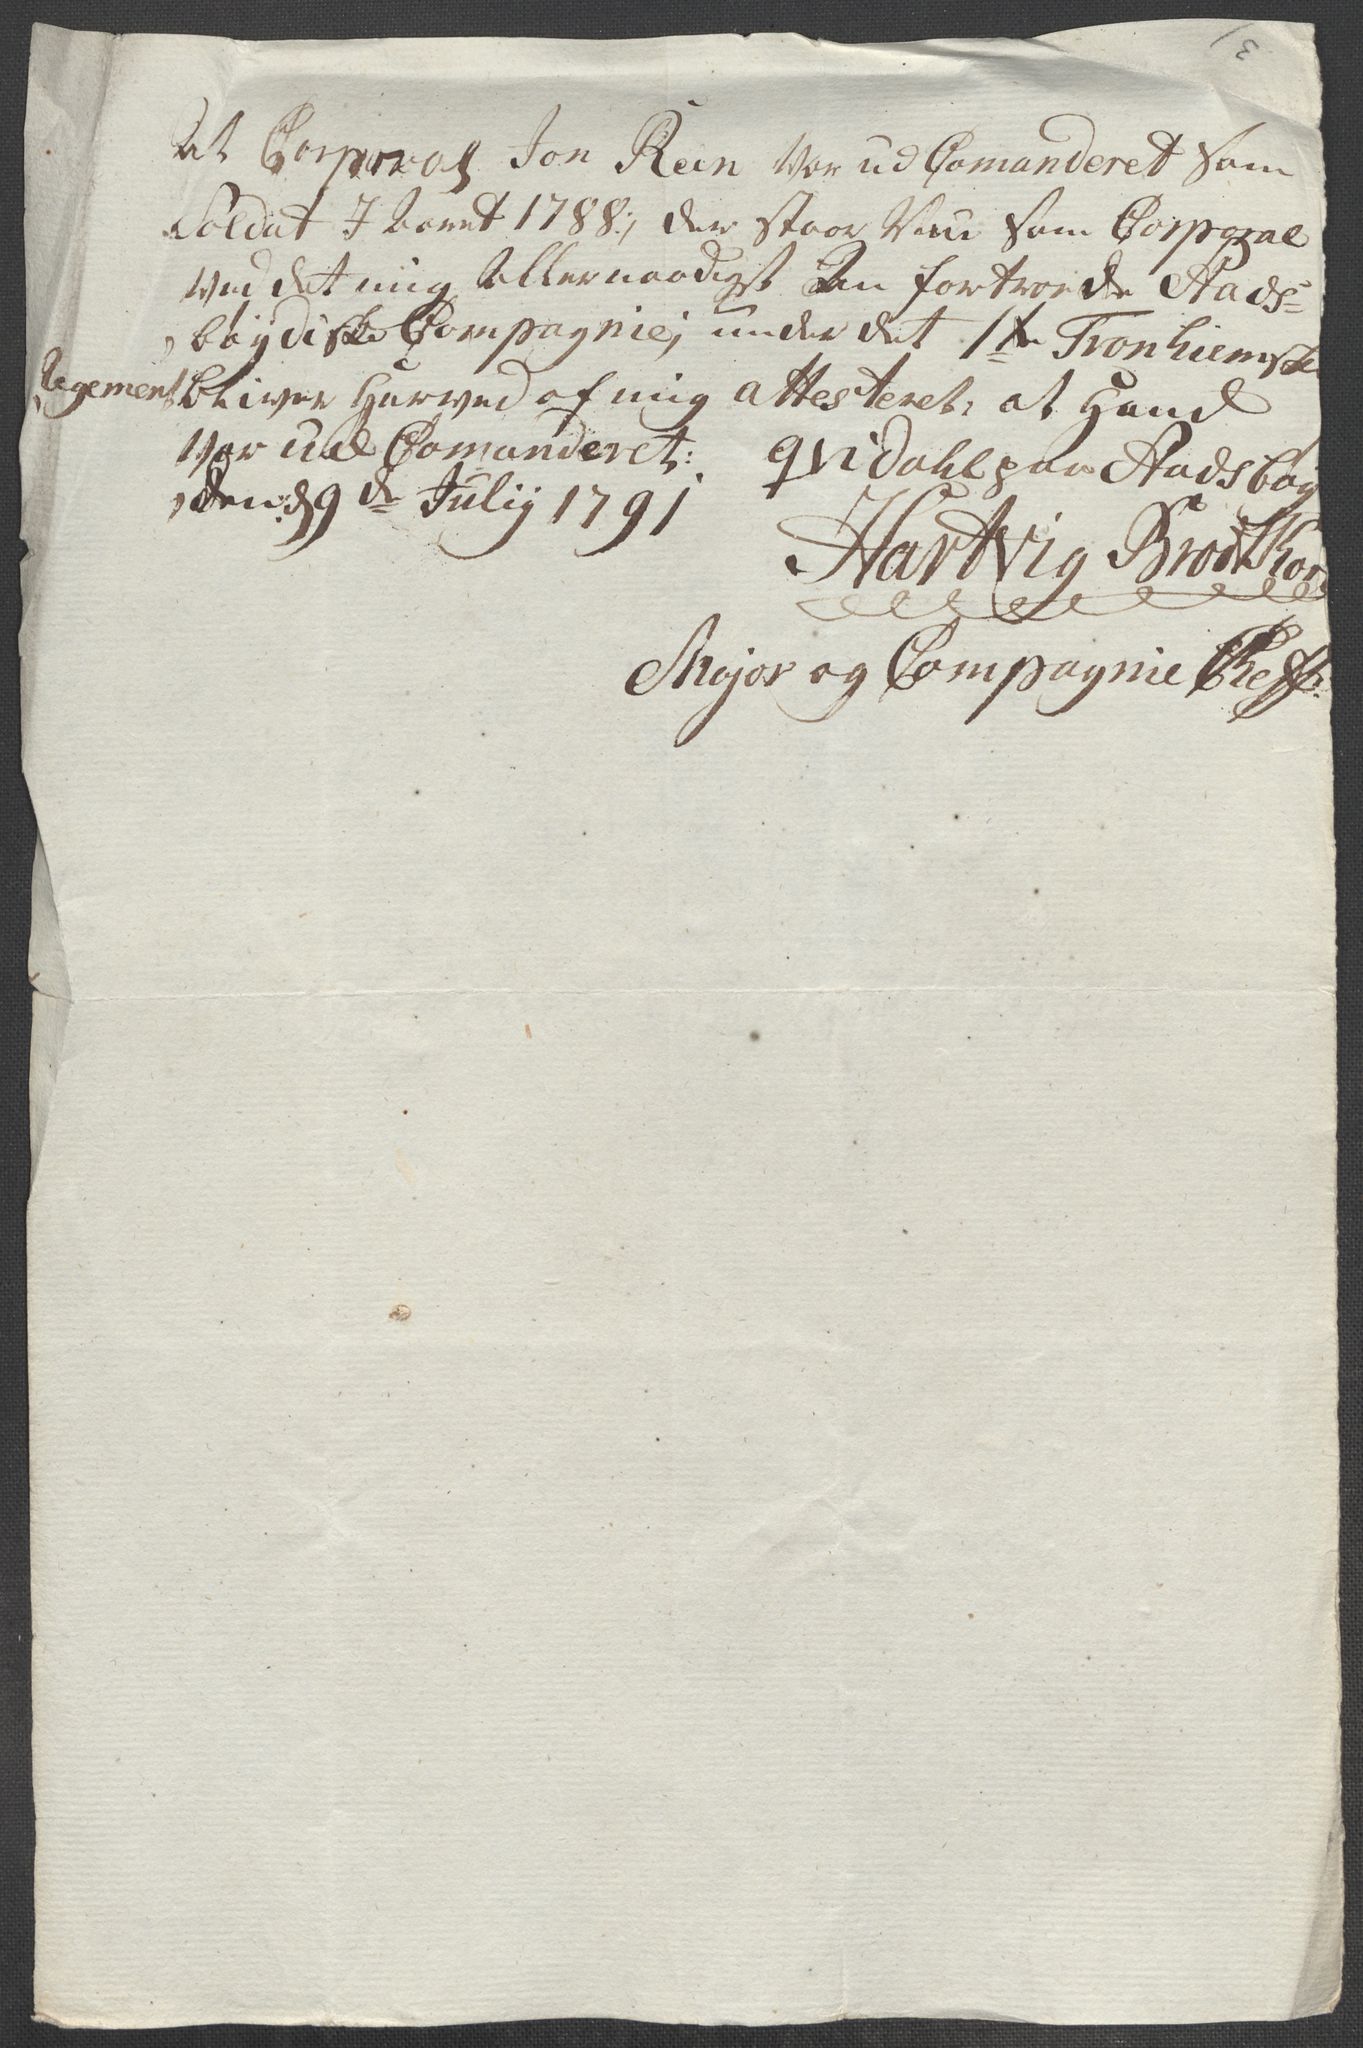 3
At Corporal Jon Rein var ud Comanderet som
Soldat I Aaret 1788:, der staar Nu som Corporal
ved det mig Allernaadigst An fortroede Aads-
bøydiske Compagnie, under det 1te Tronhiemske
Regement bliver Herved af mig attesteret, at Hand
var ud Comanderet:  qvidahl paa Aadsbøy
den: 9de Julij 1791
Hartvig Brodtkor
Major og Compagnie Cheff